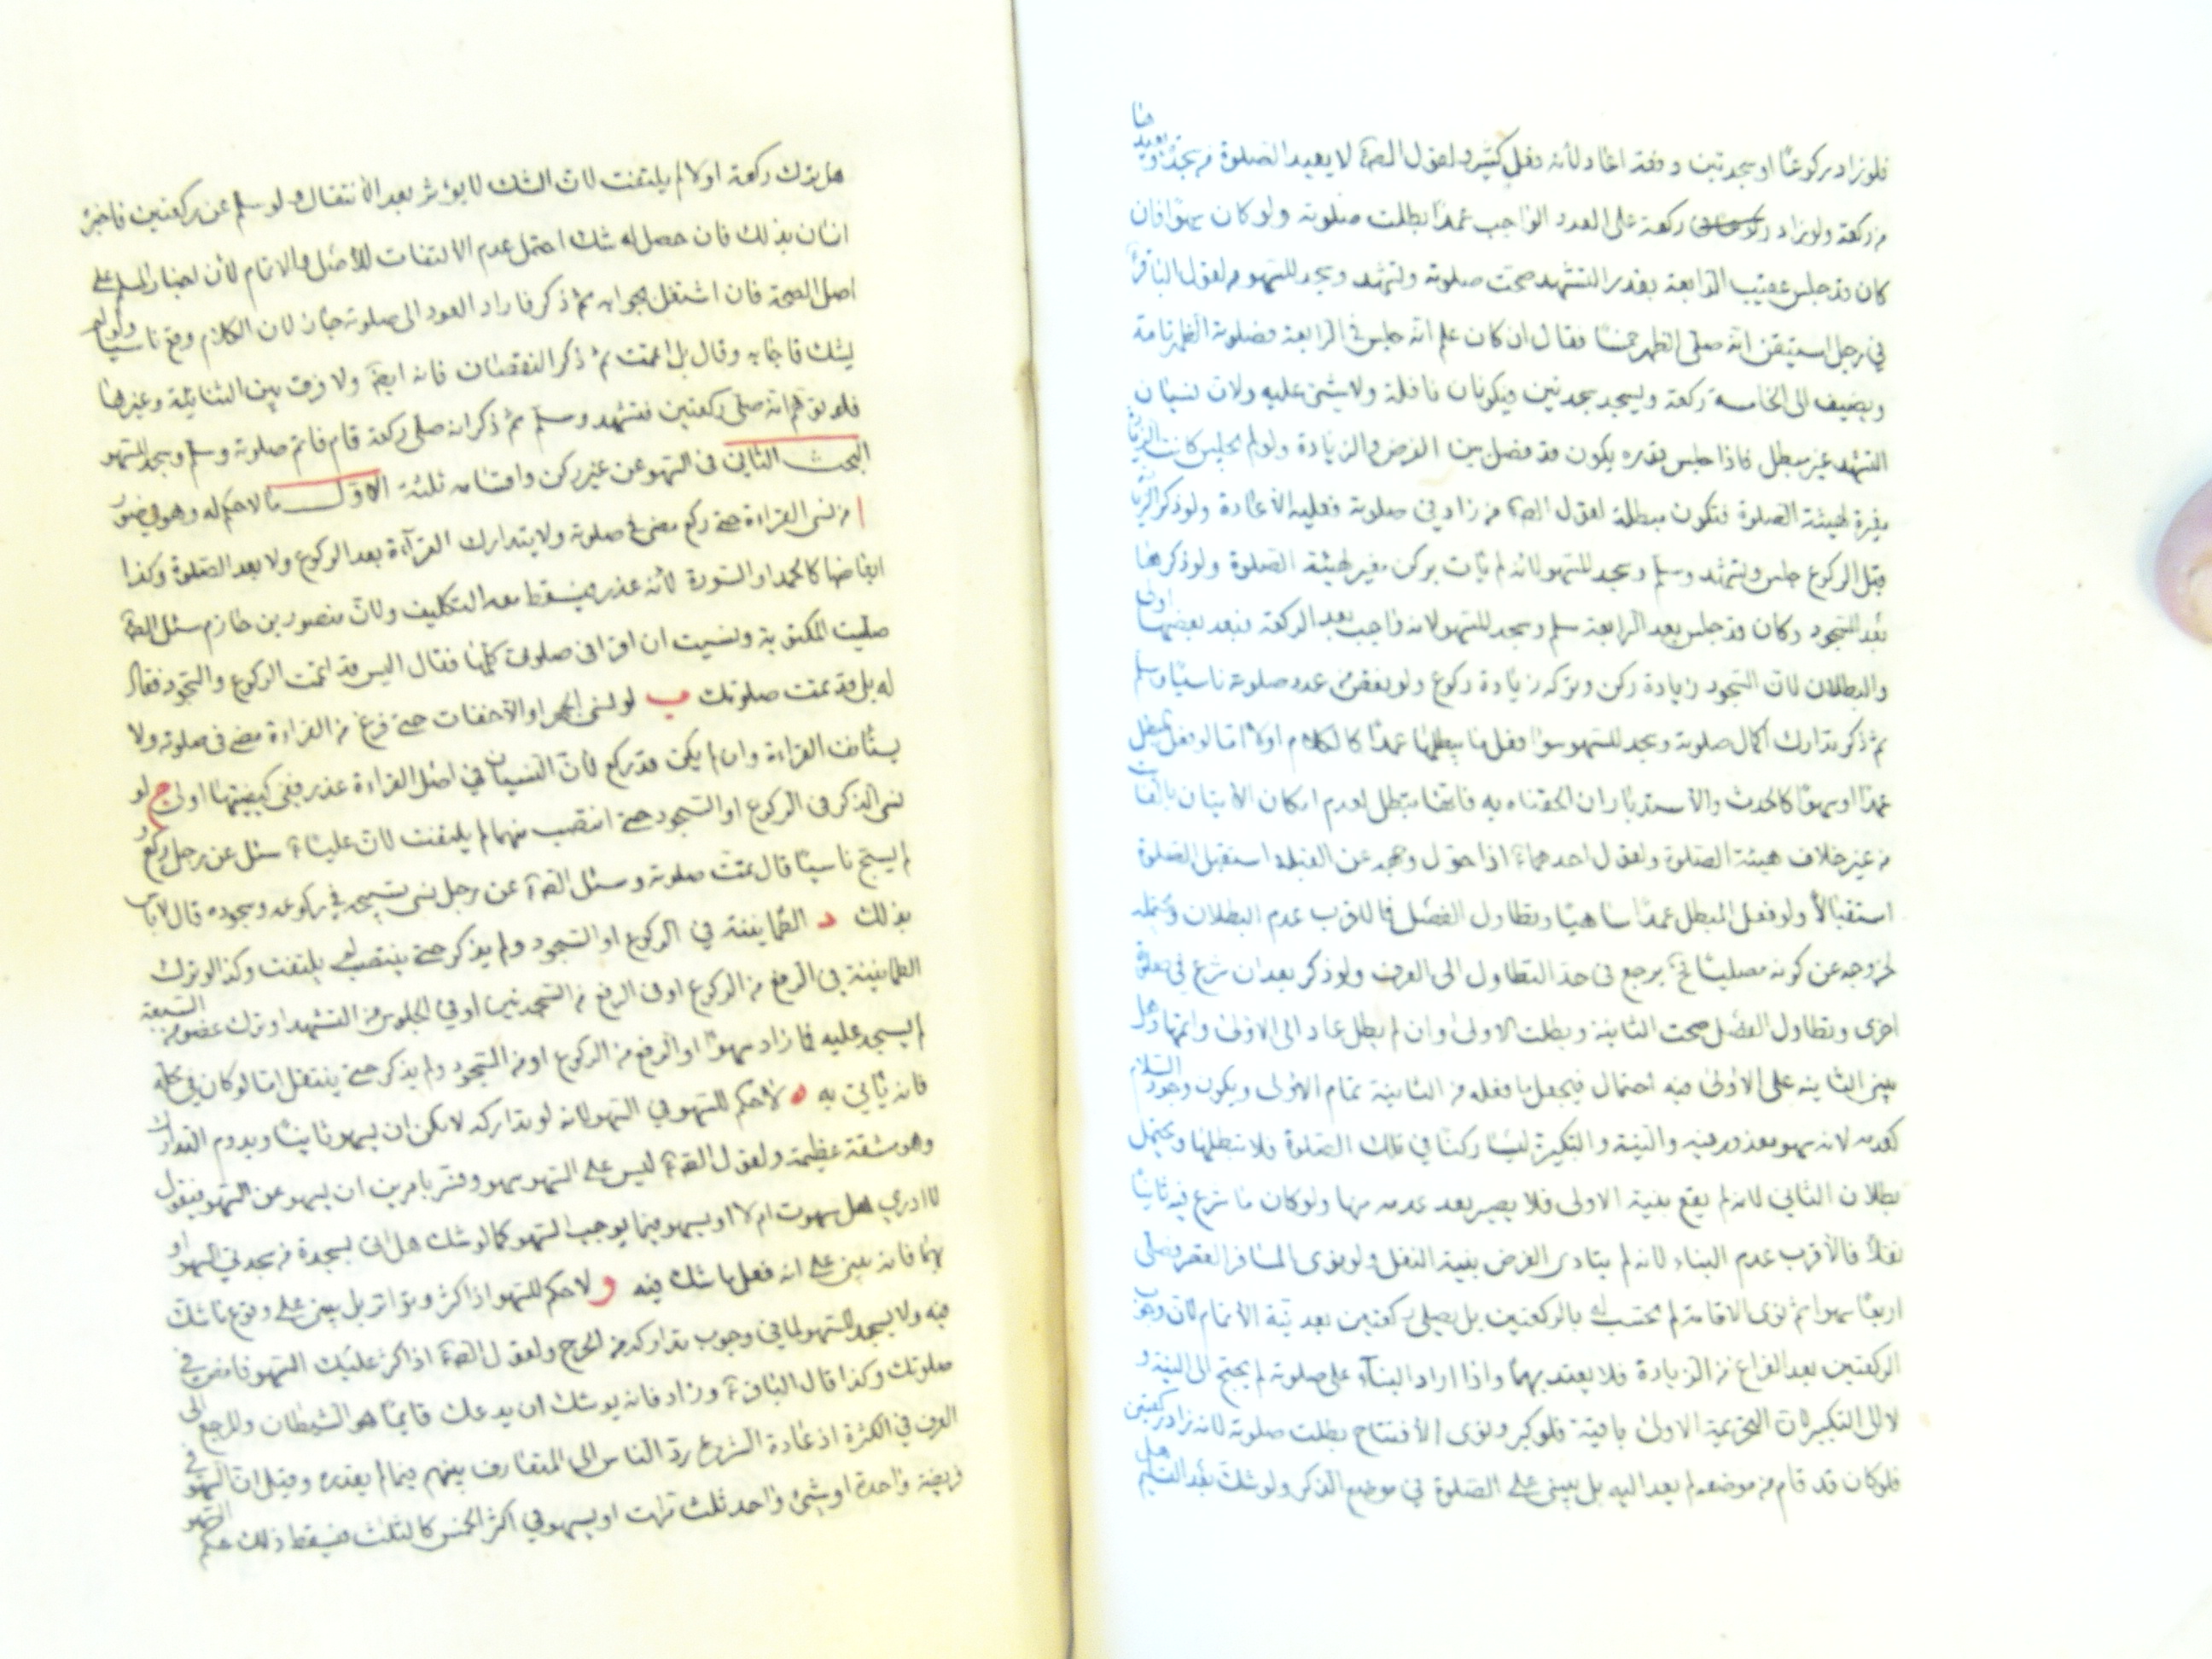 فلو زاد ركوعا او سجدتين دفعة اعاد لأنه فعل كثير ولقول الصۤ لا يعيد الصلوة من سجدة ويعيدها
من ركعة ولو زاد ركعة على العدد الواجب عمدا بطلت صلوته ولو كان سهوا فان
كان قد جلس عقيب الرابعة بقدر التشهد صحت صلوته وتشهد وسجد للسهو لقول الباقرۤ
في رجل استيقن انه صلى الظهر خمسا فقال ان كان علم انه جلس في الرابعة فصلوة الظهر تامة
ويضيف الى الخامسة ركعة ويسجد سجدتين ويكونان نافلة ولا شئ عليه ولان نسيان
التشهد غير مبطل فاذا جلس بقدره يكون قد فصل بين الفرض والزيادة ولو لم يجلس كانت الزيادة
مغيرة لهيئة الصلوة فتكون مبطلة لقول الصۤ من زاد في صلوته فعليه الاعادة ولو ذكر الزيادة
قبل الركوع جلس وتشهد وسلم وسجد للسهو لانه لم يات بركن مغير لهيئة الصلوة ولو ذكرها
بعد السجود وكان قد جلس بعد الرابعة سلم وسجد للسهو لانه واجب بعد الركعة فبعد بعضها اولى
والبطلان لان السجود زيادة ركن وتركه زيادة ركوع ولو نقص من عدد صلوته ناسيا وسلم
ثم ذكر تدارك اكمال صلوته وسجد للسهو سواء فعل ما يبطلها عمدا كالكلام اولا اما لو فعل المبطل
عمدا وسهوا كالحدث والاستدبار ان الحقناه به فانها تبطل لعدم امكان الاتيان بالفائت
من غير خلاف هيئة الصلوة ولقول احدهماۤ اذا حول وجهه عن القبلة استقبل الصلوة
استقبالا ولو فعل المبطل عمدا ساهيا وتطاول الفصل فالاقرب عدم البطلان ويحتمله
لخروجه عن كونه مصليا فح يرجع في حد التطاول الى العرف ولو ذكر بعد ان شرع في صلوة
اخرى وتطاول الفصل صحت الثانية وبطلت الاولى وان لم يطل عاد الى الاولى واتمها وهل
يبني الثانية على الاولى فيه احتمال فيجعل ما فعله من الثانية تمام الاولى ويكون وجود السلام
كعدمه لانه سهو معذور فيه والنية والتكبيرة ليسا ركنا في تلك الصلوة فلا تبطلها ويحتمل
بطلان الثاني لانه لم يقع بنية الاولى فلا يصير بعد عدمه منها ولو كان ما شرع فيه ثانيا
نفلا فالاقرب عدم البناء لانه لم يتادى الفرض بنية النفل ولو نوى المسافر القصر فصلى
اربعا سهوا ثم نوى الاقامة لم يحتسب له بالركعتين بل يصلى ركعتين بعد نية الاتمام لان وجوب
الركعتين بعد الفراغ من الزيادة فلا يعتد بهما واذا اراد البناء على صلوته لم يحتج الى النية و
لا الى التكبير لان التحريمة الاولى باقية فلو كبر ونوى الافتتاح بطلت صلوته لانه زاد ركعتين
فلو كان قد قام من موضعه لم يعد اليه بل يبني على الصلوة في موضع الذكر ولو شك بعد التسليم هل
هل ترك ركعة اولا لم يلتفت لان الشك لا يؤثر بعد الانتقال ولو سلم عن ركعتين فاخبره
انسان بذلك فان حصل له شك احتمل عدم الالتفات للاصل والاتمام لأن اخبار المسلم على
اصل الصحة فان اشتغل بجوابه ثم ذكر فاراد العود الى صلوته جاز لان الكلام وقع ناسيا ولو لم
يشك فاجابه وقال بل اتممت ثم ذكر النقصان فانه ايضا ولا فرق بين الثنائية وغيرها
فلو توهم انه صلى ركعتين فتشهد وسلم ثم ذكر انه صلى ركعة قام فاتم صلوته وسلم وسجد للسهو
البحث الثاني في السهو عن غير ركن واقسامه ثلثة الاول ما لا حكم له وهو في صور
ا من نسى القراءة حتى ركع مضى في صلوته ولا يتدارك القراءة بعد الركوع ولا بعد الصلوة وكذا
ابعاضها كالحمد او السورة لأنه عذر فيسقط معه التكليف ولان منصور بن حازم سئل الصۤ
صليت المكتوبة ونسيت ان اقرا في صلوتى كلها فقال اليس قد اتممت الركوع والسجود فقال
له بلى قد تمت صلوتك ب لو نسى الجهر او الاخفات حتى فرغ من القراءة مضى في صلوته ولا
يستأنف القراءة وان لم يكن قد ركع لان النسيان في اصل القراءة عذر ففي كيفيتها اولى ج لو
نسى الذكر في الركوع او السجود حتى انتصب منهما لم يلتفت لان علياۤ سئل عن رجل ركع و
لم يسبح ناسيا قال تمت صلوته وسئل الصۤ عن رجل نسى تسبيحه في ركوعه وسجوده قال لا باس
بذلك د الطمانينة في الركوع او السجود ولم يذكر حتى ينتصب لم يلتفت وكذا لو ترك
الطمانينة في الرفع من الركوع او في الرفع من السجدتين او في الجلوس من التشهد او ترك عضو من السبعة
لم يسجد عليه فما زاد سهوا او الرفع من الركوع او من السجود ولم يذكر حتى ينتقل اما لو كان في محله
فانه يأتي به ه لا حكم للسهو في السهو لانه لو تداركه لامكن ان يسهو ثانيا ويدوم التدارك
وهو مشقة عظيمة ولقول الصۤ ليس على السهو سهو وفسر بامرين ان يسهو عن السهو فيقول
لا ادري هل سهوت ام لا او يسهو فيما يوجب السهو كما لو شك هل اتى بسجدة من سجدتي السهو او
بهما فانه يبني على انه فعل ما شك فيه و لا حكم للسهو اذا كثر وتواتر بل يبني على وقوع ما شك
فيه ولا يسجد للسهو لما في وجوب تداركه من الحرج ولقول الصۤ اذا كثر عليك السهو فامض في
صلوتك وكذا قال الباقرۤ وزاد فانه يوشك ان يدعك فانما هو الشيطان والمرجع الى
العرف في الكثرة اذ عادة الشرع رد الناس الى المتعارف بينهم فيما لم يقدره وقيل ان السهو في
فريضة واحدة او شئ واحد ثلث مرات او يسهو في اكثر الخمس كالثلث فيسقط ذلك عنه